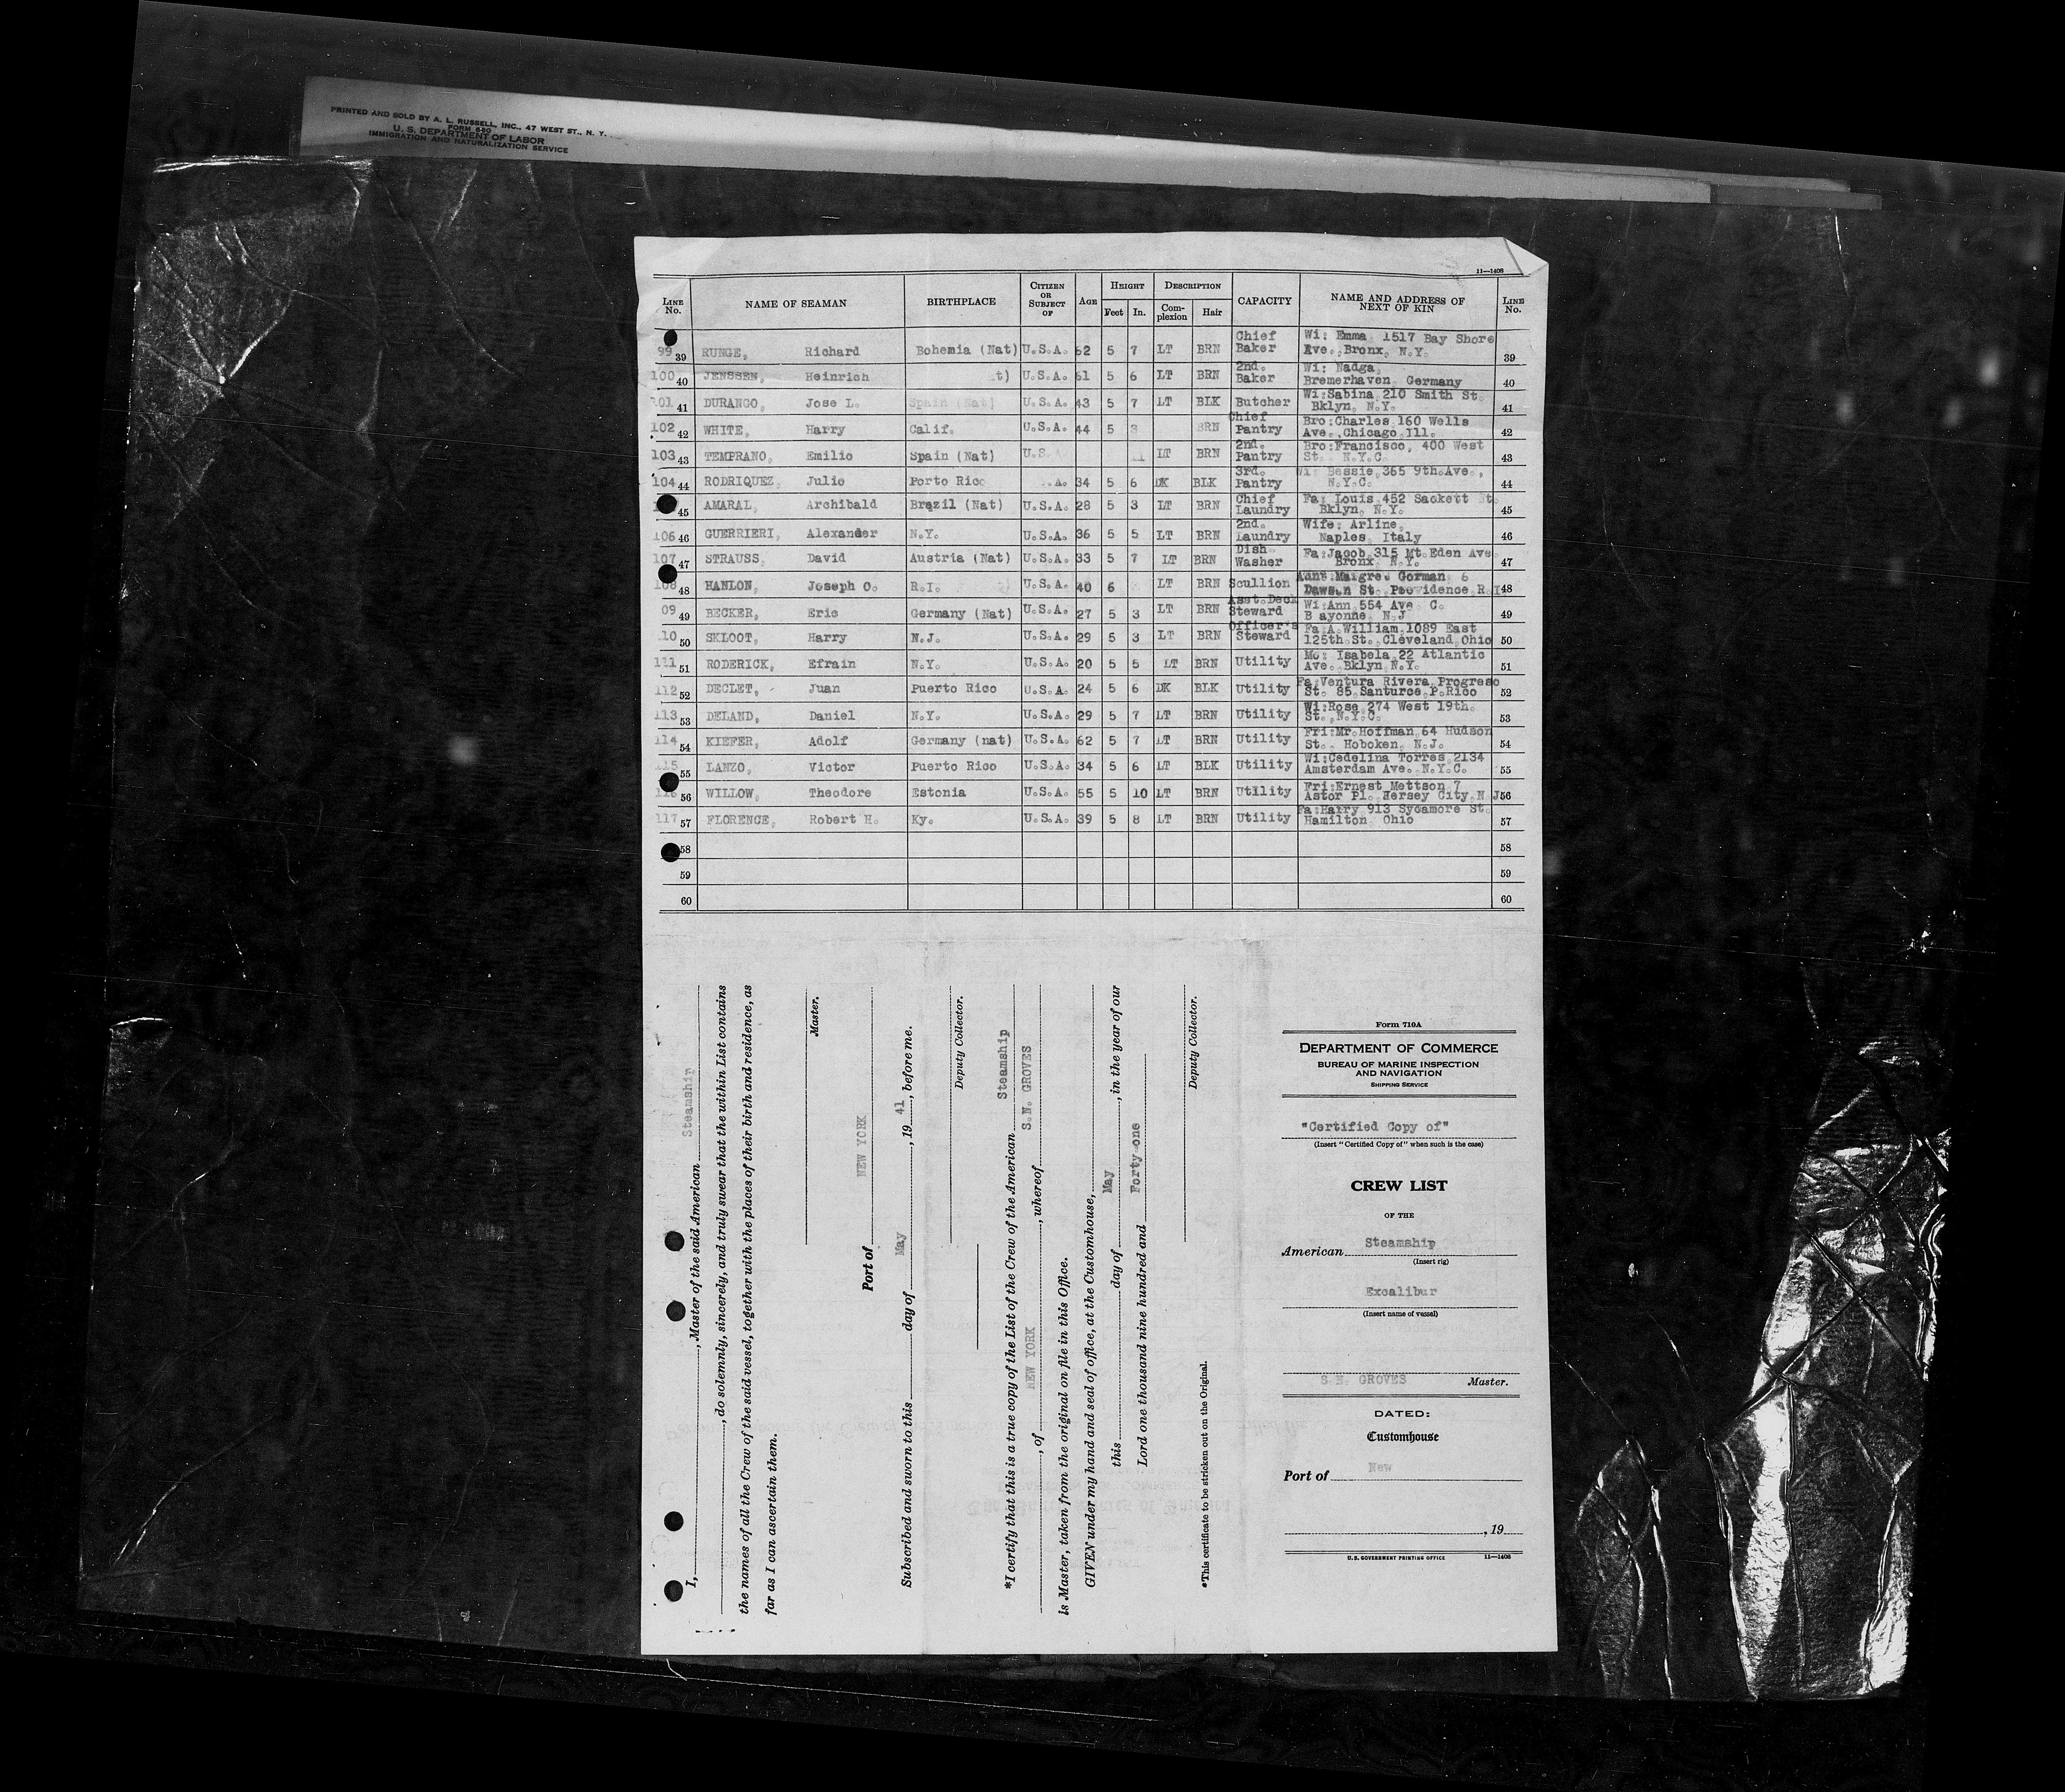 PRINTED AND SOLD BY A. L. RUSSELL, INC., 47 WEST ST., N. Y.
FORM 680
U. S. DEPARTMENT OF LABOR
IMMIGRATION AND NATURALIZATION SERVICE
11—1408
LINE No. NAME OF SEAMAN BIRTHPLACE CITIZEN OR SUBJECT OF AGE HEIGHT Feet In. DESCRIPTION Complexion Hair CAPACITY NAME AND ADDRESS OF NEXT OF KIN LINE No.
99 39 RUNGE, Richard Bohemia (Nat) U.S.A. 62 5 7 LT BRN Chief Baker Wi: Emma 1517 Bay Shore Ave., Bronx, N.Y. 39
100 40 JENSSEN, Heinrich t) U.S.A. 61 5 6 LT BRN 2nd. Baker Wi: Nadga, Bremerhaven Germany 40
101 41 DURANGO, Jose L. Spain (Nat) U.S.A. 43 5 7 LT BLK Butcher Wi:Sabina 210 Smith St. Bklyn, N.Y. 41
102 42 WHITE, Harry Calif. U.S.A. 44 5 8 BRN Chief Pantry Bro:Charles 160 Wells Ave., Chicago Ill. 42
103 43 TEMPRANO, Emilio Spain (Nat) U.S. 11 LT BRN 2nd. Pantry Bro:Francisco, 400 West St. N.Y.C. 43
104 44 RODRIQUEZ, Julio Porto Rico .A. 34 5 6 DK BLK 3rd. Pantry Wi: Bessie 365 9th.Ave., N.Y.C. 44
45 AMARAL, Archibald Brazil (Nat) U.S.A. 28 5 3 LT BRN Chief Laundry Fa: Louis 452 Sackett St. Bklyn, N.Y. 45
106 46 GUERRIERI, Alexander N.Y. U.S.A. 36 5 5 LT BRN 2nd. Laundry Wife: Arline, Naples, Italy 46
107 47 STRAUSS, David Austria (Nat) U.S.A. 33 5 7 LT BRN Dish Washer Fa:Jacob 315 Mt.Eden Ave. Bronx, N.Y. 47
108 48 HANLON, Joseph C. R.I. U.S.A. 40 6 LT BRN Scullion Aunt Margret Gorman 6 Dawson St. Providence R.I. 48
09 49 BECKER, Eric Germany (Nat) U.S.A. 27 5 3 LT BRN Asst.Deck Steward Wi:Ann 554 Ave. C. B ayonne, N.J 49
110 50 SKLOOT, Harry N.J. U.S.A. 29 5 3 LT BRN Officer's Steward Fa:A.William 1089 East 125th.St. Cleveland Ohio 50
111 51 RODERICK, Efrain N.Y. U.S.A. 20 5 5 LT BRN Utility Mo: Isabela 22 Atlantic Ave. Bklyn N.Y. 51
112 52 DECLET, Juan Puerto Rico U.S.A. 24 5 6 DK BLK Utility Fa:Ventura Rivera Progreso St. 85 Santurce P.Rico 52
113 53 DELAND, Daniel N.Y. U.S.A. 29 5 7 LT BRN Utility Wi:Rose 274 West 19th. St., N.Y.C. 53
114 54 KIEFER, Adolf Germany (nat) U.S.A. 62 5 7 LT BRN Utility Fri:Mr.Hoffman 64 Hudson St. Hoboken, N.J. 54
115 55 LANZO, Victor Puerto Rico U.S.A. 34 5 6 LT BLK Utility Wi:Cedelina Torres 2134 Amsterdam Ave. N.Y.C. 55
116 56 WILLOW, Theodore Estonia U.S.A. 55 5 10 LT BRN Utility Fri:Ernest Mettson 7 Astor Pl. Jersey City N J 56
117 57 FLORENCE, Robert H. Ky. U.S.A. 39 5 8 LT BRN Utility Fa:Harry 913 Sycamore St. Hamilton Ohio 57
58 58
59 59
60 60
I, , Master of the said American Steamship
, do solemnly, sincerely, and truly swear that the within List contains
the names of all the Crew of the said vessel, together with the places of their birth and residence, as
far as I can ascertain them.
Master.
Port of NEW YORK
Subscribed and sworn to this day of May , 19 41 , before me.
Deputy Collector.
*I certify that this is a true copy of the List of the Crew of the American Steamship
, of NEW YORK , whereof S.N. GROVES
is Master, taken from the original on file in this Office.
GIVEN under my hand and seal of office, at the Customhouse,
this day of May , in the year of our
Lord one thousand nine hundred and Forty-one
Deputy Collector.
*This certificate to be stricken out on the Original.
Form 710A
DEPARTMENT OF COMMERCE
BUREAU OF MARINE INSPECTION
AND NAVIGATION
SHIPPING SERVICE
"Certified Copy of"
(Insert "Certified Copy of" when such is the case)
CREW LIST
OF THE
American Steamship
(Insert rig)
Excalibur
(Insert name of vessel)
S.N. GROVES Master.
DATED:
Customhouse
Port of New
, 19
U.S. GOVERNMENT PRINTING OFFICE 11—1408